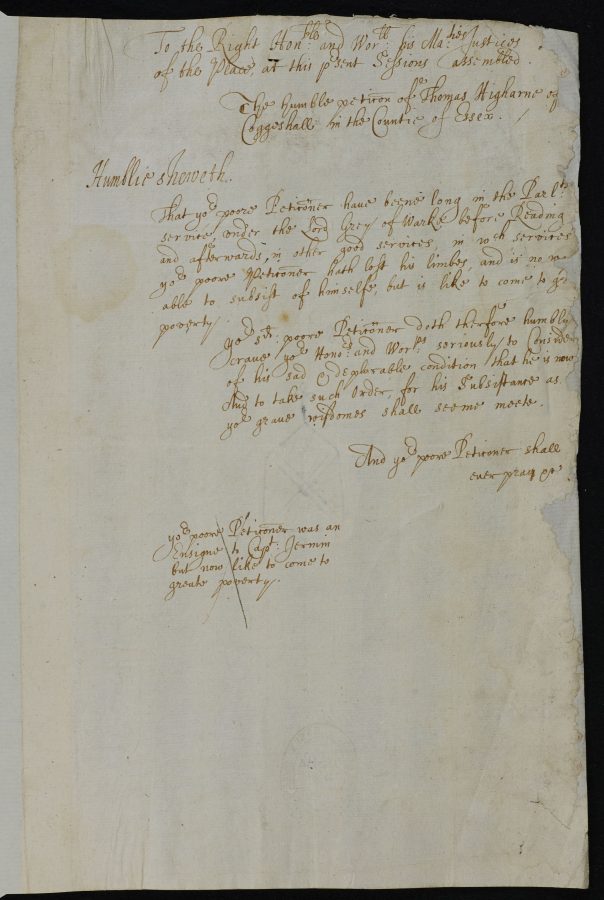 To the Right Hon:ble and Wor:ll his Ma:ties Justices
of the Peace at this p'sent Sessions assembled.
The humble peticon of Thomas Higharne of
Coggeshall in the Countie of Essex.
Humblie sheweth.
That yor poore Peticoner have beene long in the Parl:ts
service, under the Lord Grey of Warke before Reading
and afterwards, in other good services, in wch services
yor poore Peticoner hath lost his limbes, and is no w
able to subsist of himselfe, but is like to come to g
poverty.
yor sd: poore Peticoner doth therfore humbly
crave yor Honors: and Worps: seriously to Consider
of his sad & deplorable condition that he is now
And to take such Order, for his Subsistance as
yor grave wisdomes shall seeme meete.
And yor poore Peticoner shall
ever pray &c
yor poore Peticoner was an
Ensigne to Capt: Jermin
but now like to come to
greate poverty.